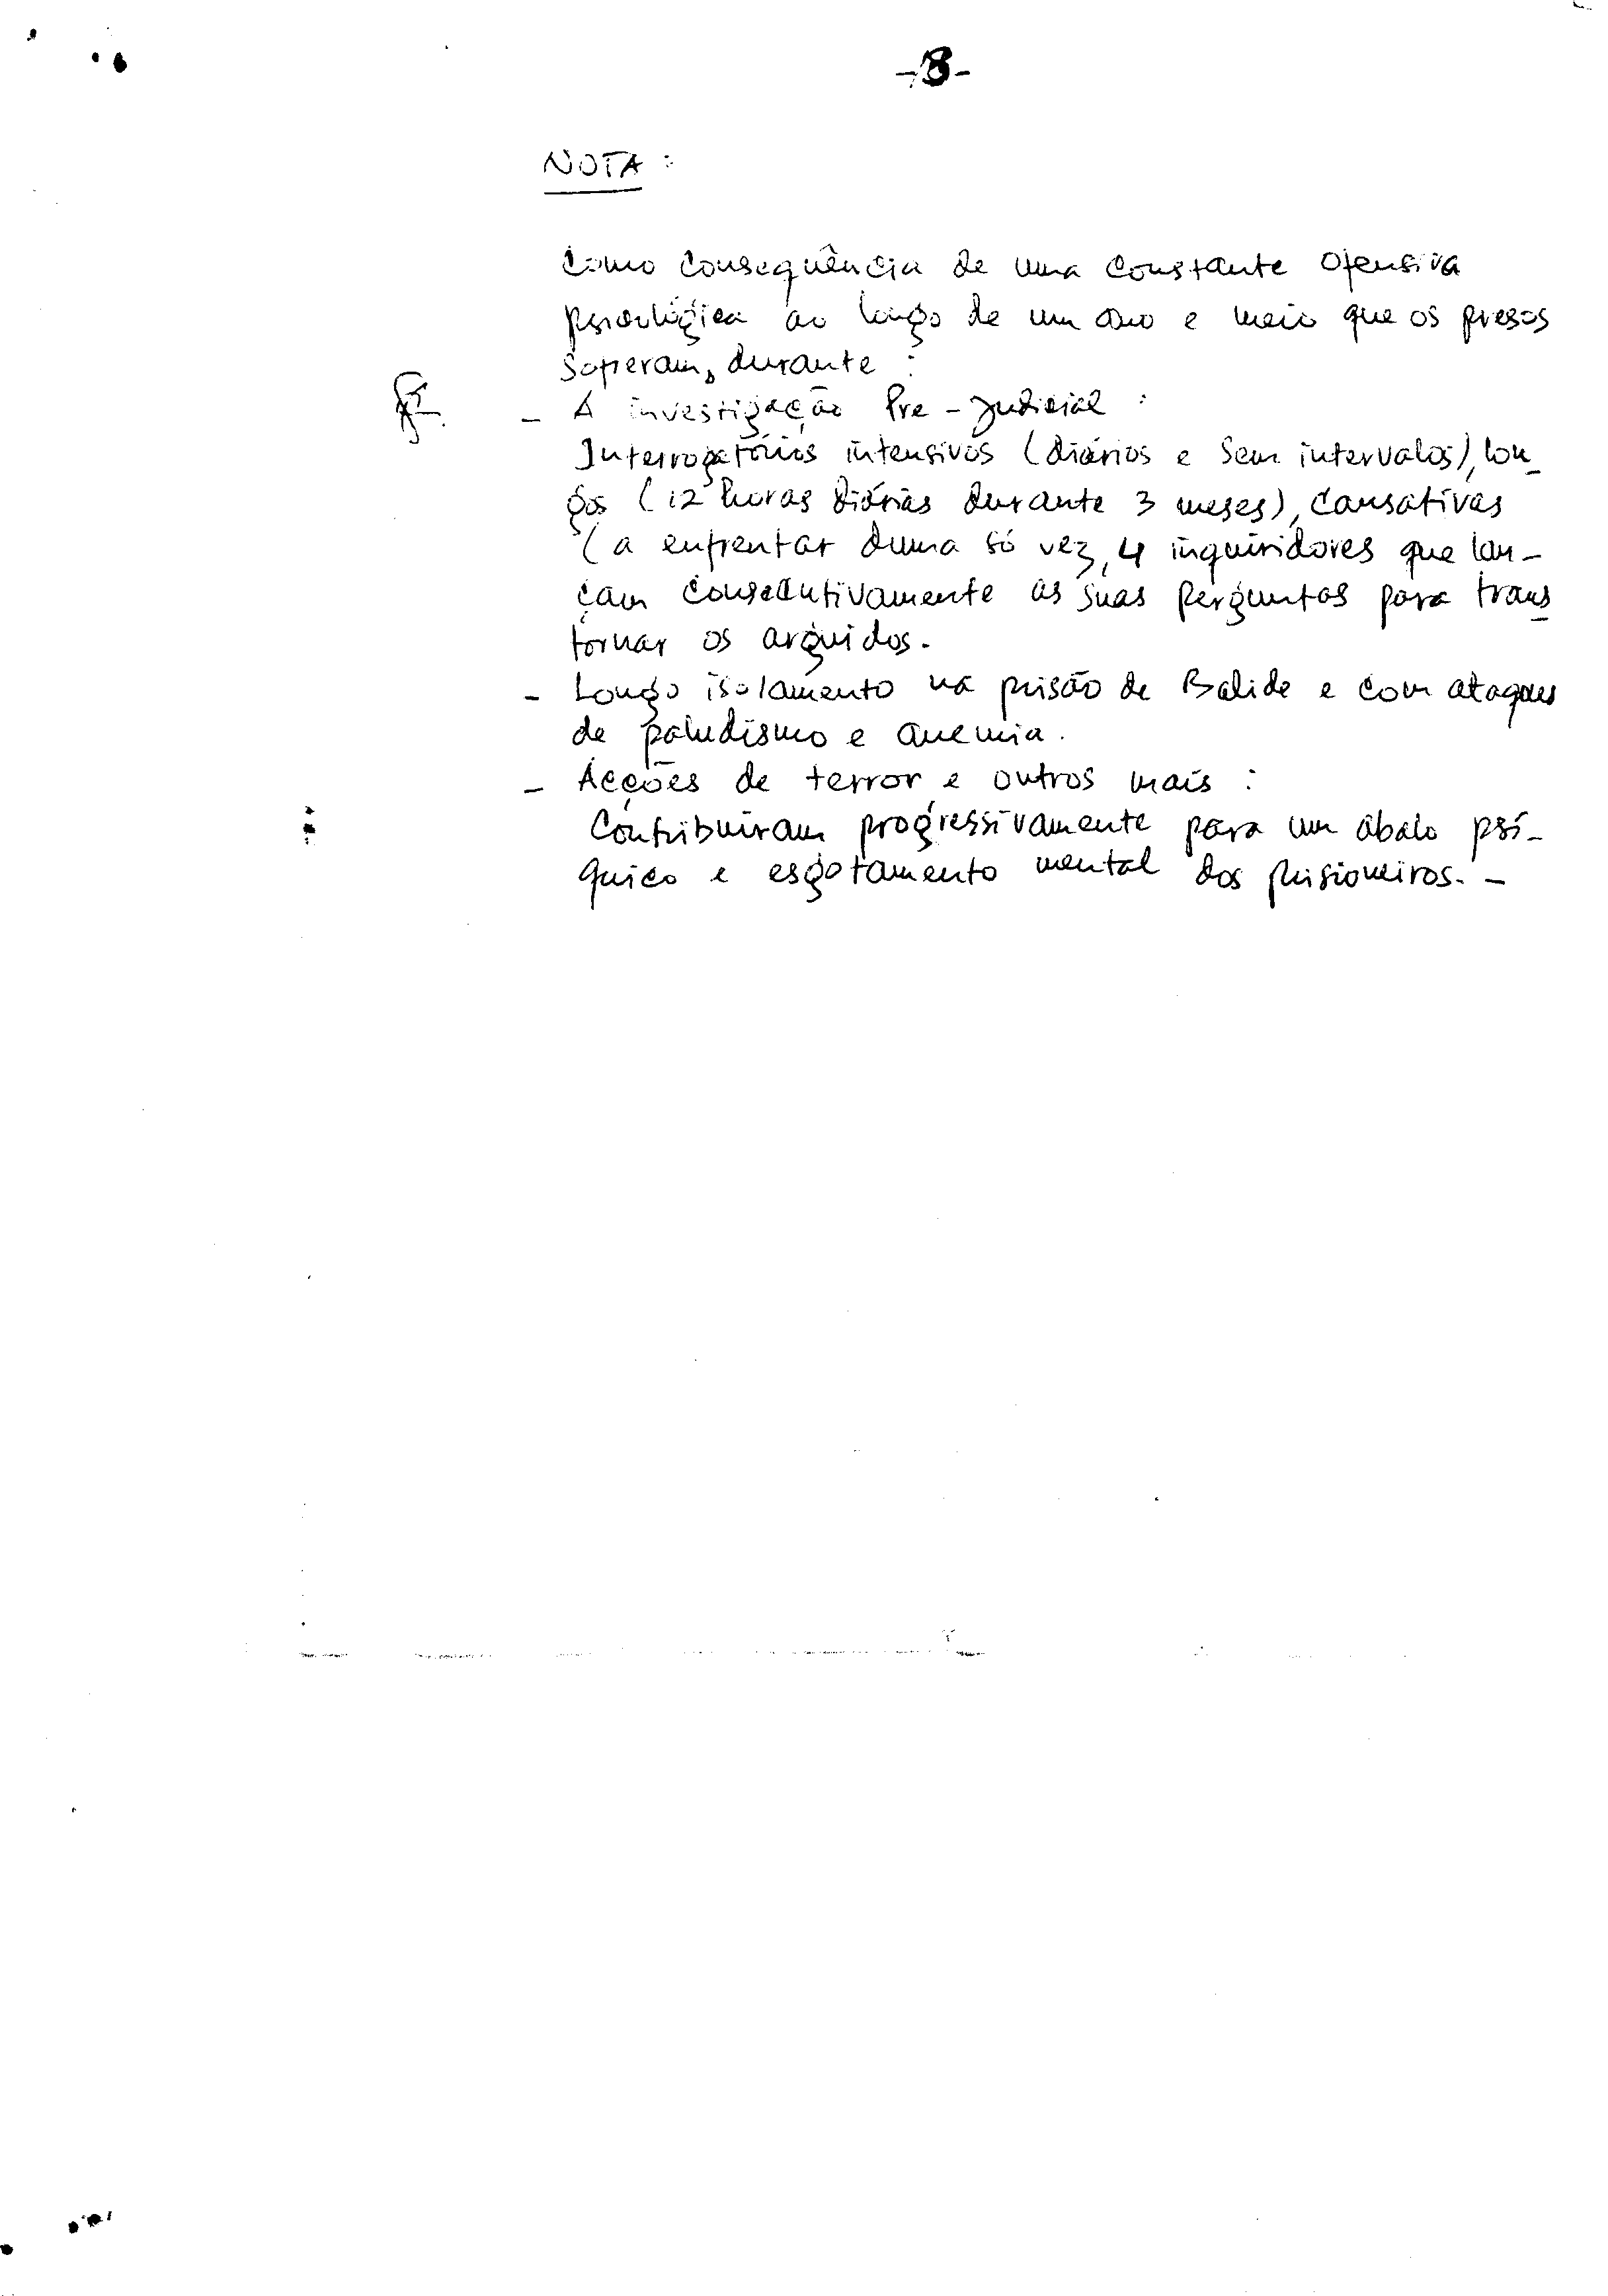 -8-
NOTA :
Como consequência de uma constante ofensiva
psicológica ao longo de um ano e meio que os presos
soferam, durante :
- A investigação Pre-Judicial :
Interrogatórios intensivos (diários e sem intervalos), lon-
gos (12 horas diárias durante 3 meses), cansativas
(a enfrentar duma só vez, 4 inquiridores que lan-
çam consecutivamente as suas perguntas para trans
tornar os arguidos.
- Longo isolamento na prisão de Balide e com ataques
de paludismo e anemia.
- Acções de terror e outros mais :
Contribuiram progressivamente para um abalo psí-
quico e esgotamento mental dos prisioneiros. -